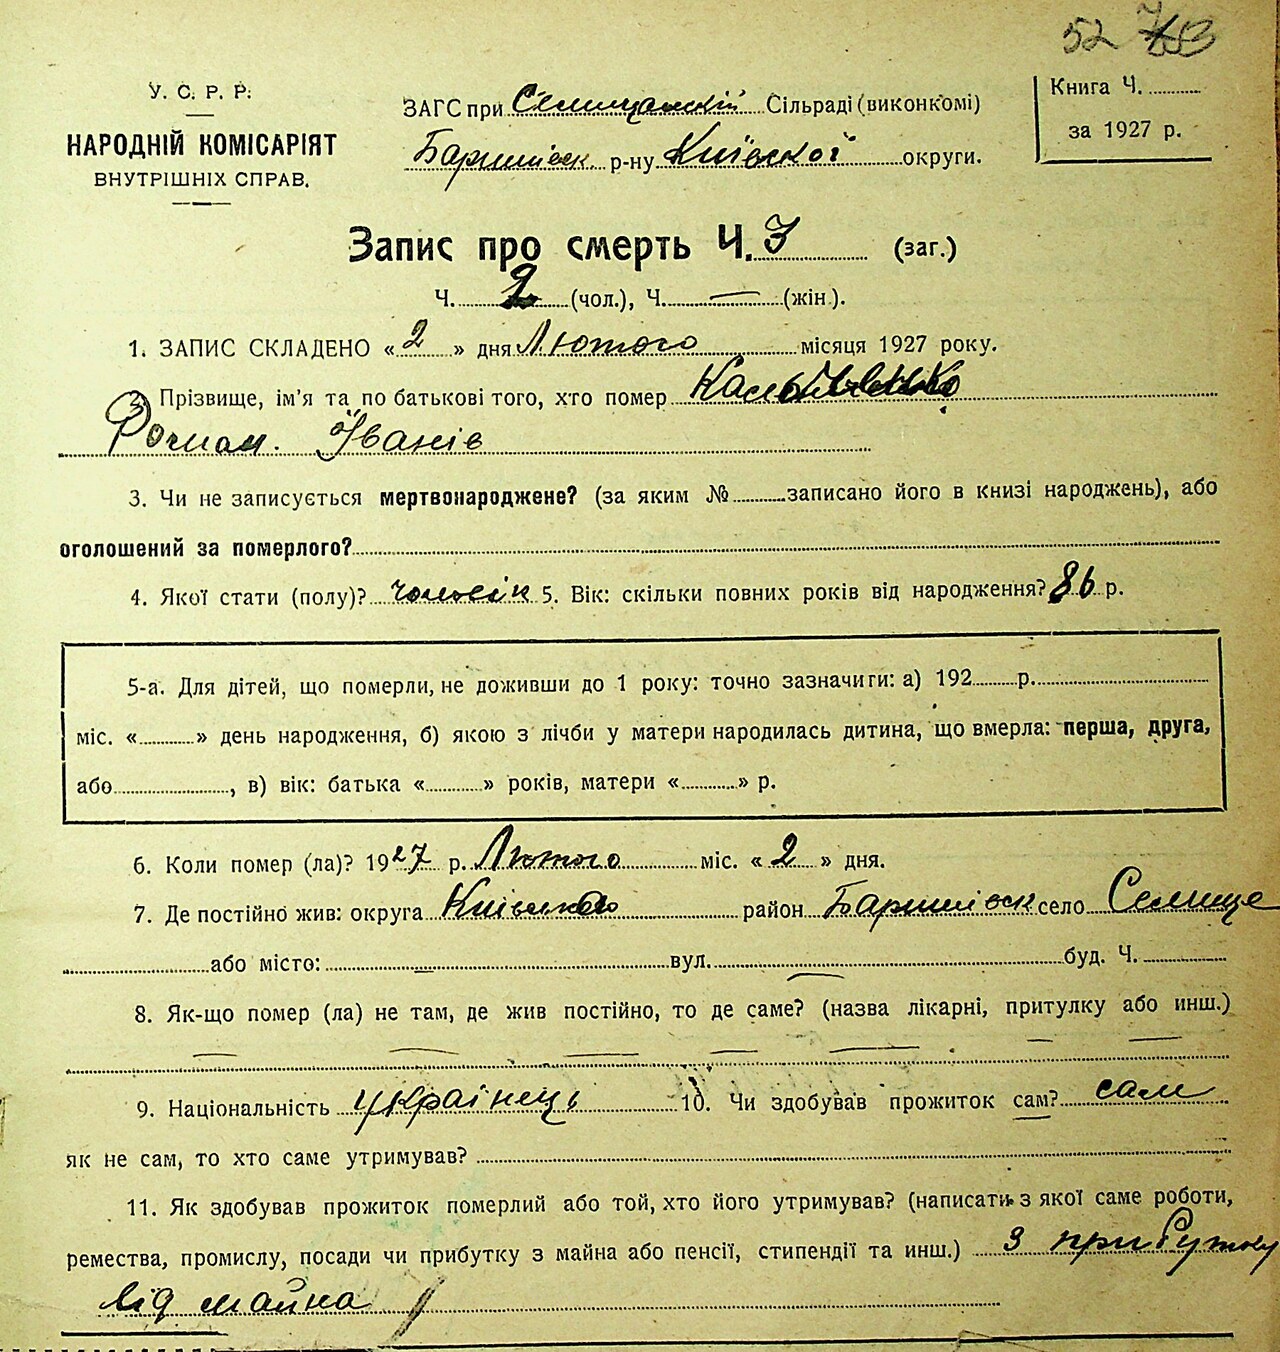 52
У. С. Р. Р.
НАРОДНІЙ КОМІСАРІЯТ
ВНУТРІШНІХ СПРАВ.
ЗАГС при Селищанскій Сільраді (виконкомі)
Баришівск. р-ну Київскої округи.
Книга Ч.
за 1927 р.
Запис про смерть Ч. 3 (заг.)
Ч. 2 (чол.), Ч. — (жін.).
1. ЗАПИС СКЛАДЕНО « 2 » дня Лютого місяця 1927 року.
2. Прізвище, ім'я та по батькові того, хто помер
Роман. Іванів
3. Чи не записується мертвонароджене? (за яким № записано його в книзі народжень), або
оголошений за померлого?
4. Якої стати (полу)? чоловік 5. Вік: скільки повних років від народження? 86 р.
5-а. Для дітей, що померли, не доживши до 1 року: точно зазначити: а) 192 р.
міс. « » день народження, б) якою з лічби у матери народилась дитина, що вмерла: перша, друга,
або , в) вік: батька « » років, матери « » р.
6. Коли помер (ла)? 1927 р. Лютого міс. « 2 » дня.
7. Де постійно жив: округа район Баришівск село Селище
або місто: — вул. — буд. Ч.
8. Як-що помер (ла) не там, де жив постійно, то де саме? (назва лікарні, притулку або инш.)
— — — — — — —
9. Національність українець 10. Чи здобував прожиток сам? сам
як не сам, то хто саме утримував?
11. Як здобував прожиток померлий або той, хто його утримував? (написати з якої саме роботи,
ремества, промислу, посади чи прибутку з майна або пенсії, стипендії та инш.) З прибутку
від майна